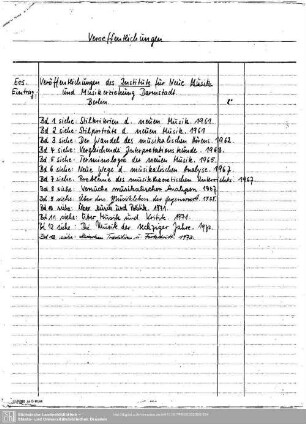 Veröffentlichungen
Ges. Eintrag:
Veröffentlichungen des Instituts für Neue Musik
und Musikerziehung Darmstadt.
Berlin. 8°
Bd 1 siehe: Stilkriterien d. neuen Musik. 1961.
Bd 2 siehe: Stilporträts d. neuen Musik. 1961
Bd 3 siehe: Der Wandel des musikalischen Hörens. 1962.
Bd 4 siehe: Vergleichende Interpretationskunde. 1962.
Bd 5 siehe: Terminologie der neuen Musik. 1965.
Bd 6 siehe: Neue Wege d. musikalischen Analyse. 1967.
Bd 7 siehe: Probleme des musiktheoretischen Unterrichts. 1967.
Bd 8 siehe: Versuche musikalischer Analysen. 1967.
Bd 9 siehe: Über das Musikleben der Gegenwart. 1968.
Bd 10 siehe: Über Musik und Politik. 1971.
Bd 11 siehe: Über Musik und Kritik. 1971.
Bd 12 siehe: Die Musik der sechziger Jahre. 1972.
Bd 13 siehe: 1973.